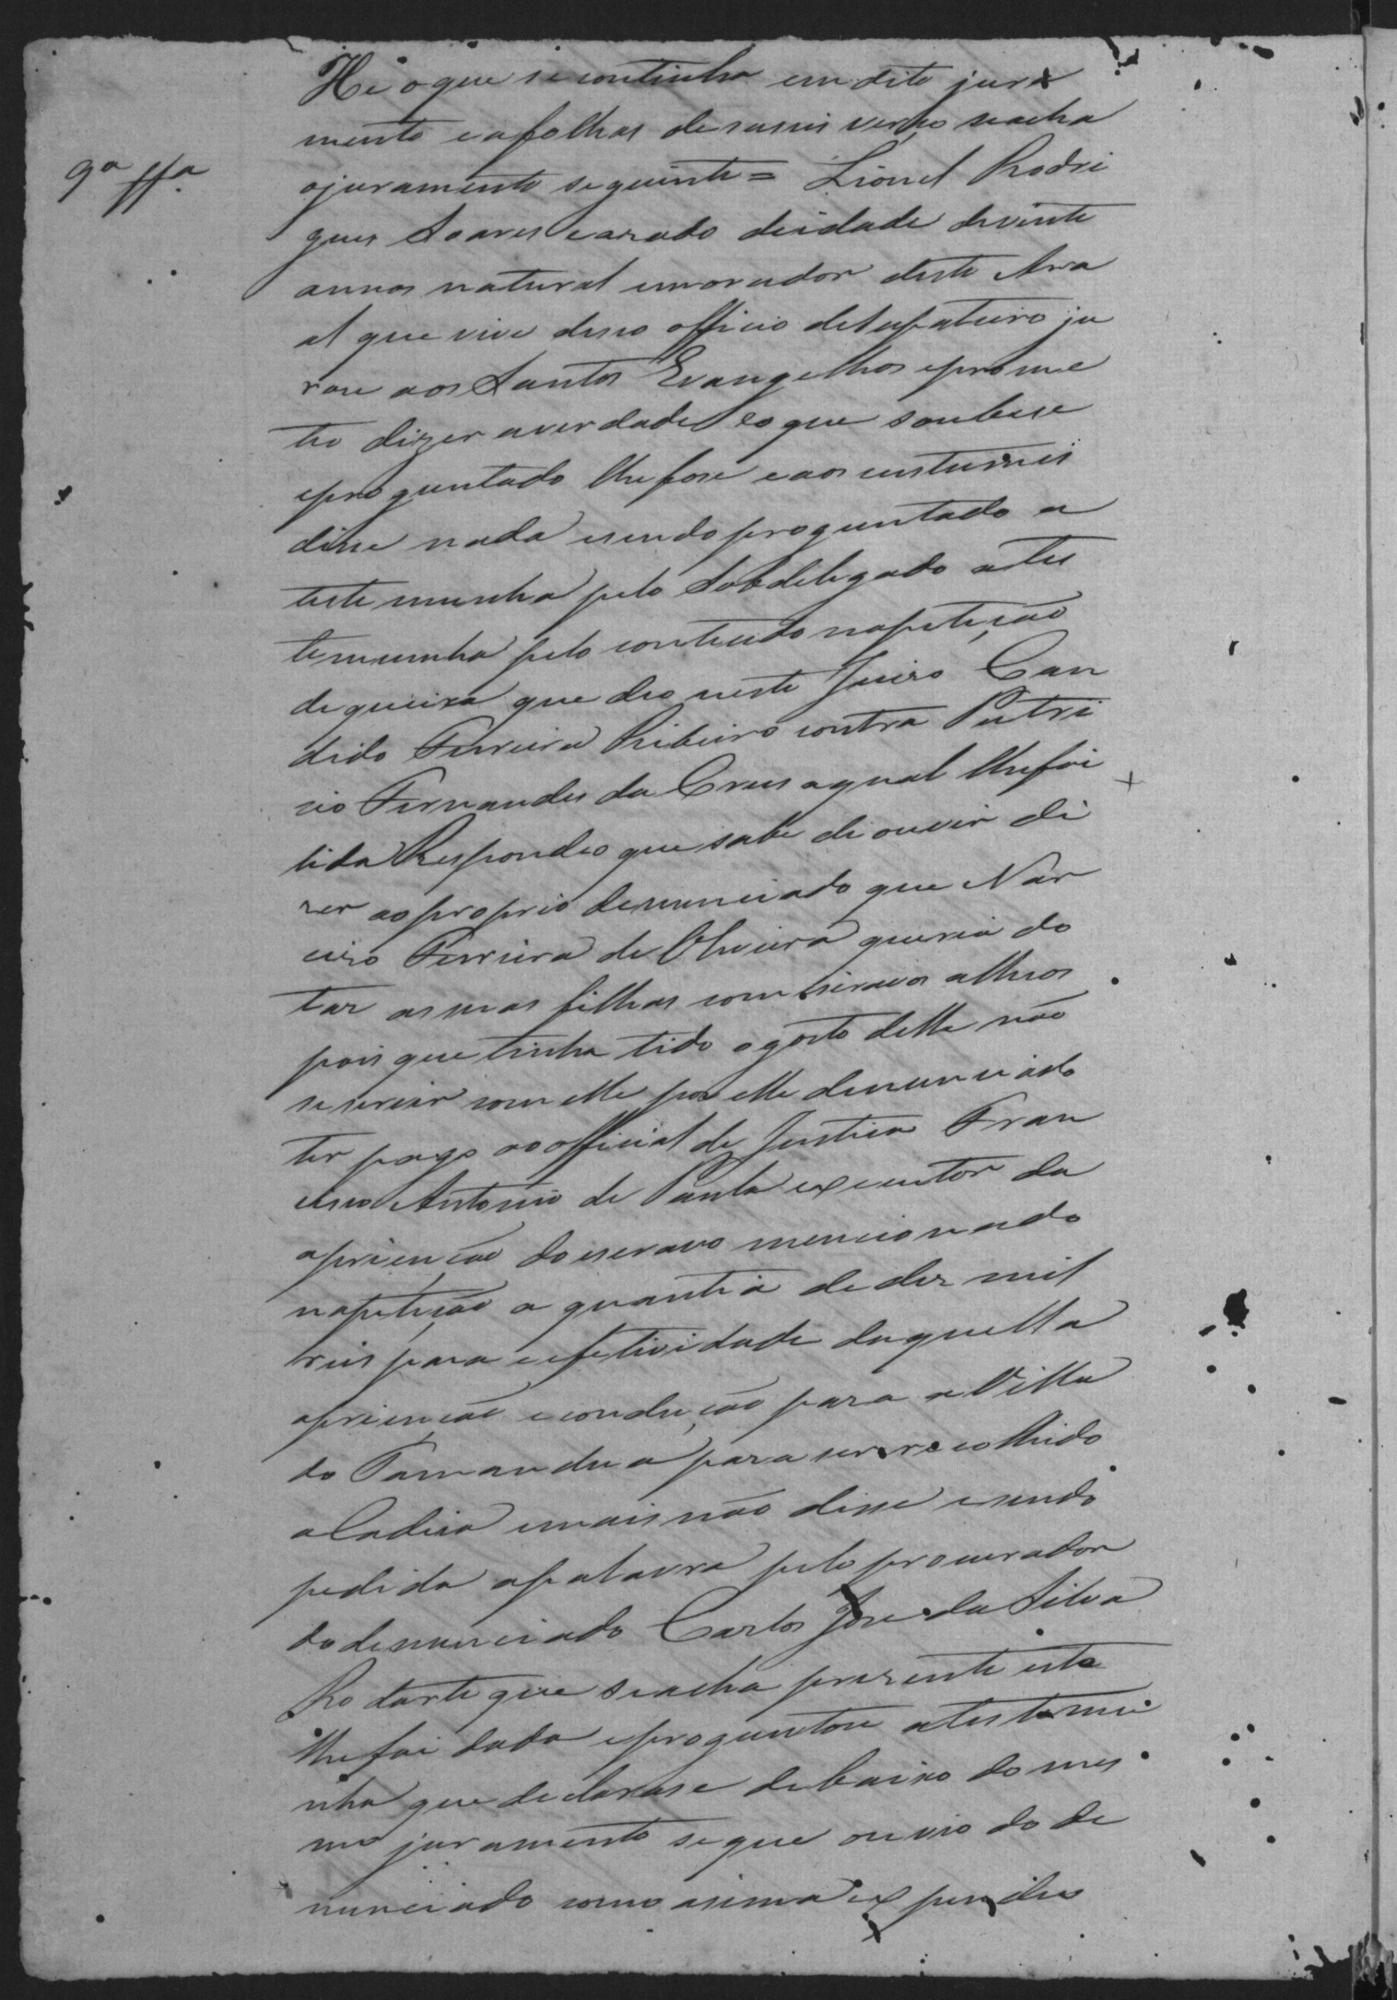 He o que se continha em dito jura
mento e a folhas deseseis verso se acha
9ª ttª
o juramento seguinte = Lionel Rodri
gues Soares cazado de idade de vinte
annos natural e morador deste Arra
al que vive de seo officio de sapateiro ju
rou aos Santos Evangelhos e prome
teo dizer a verdade do que soubese
e proguntado lhe fose e aos custumes
disse nada e sendo proguntado a
testemunha pelo Sobdelegado a tes
temunha pelo conteudo na petição
de queixa que deo neste Juizo Can
dido Ferreira Ribeiro contra Patri
cio Fernandes da Crus a qual lhe foi
lida Respondeo que sabe de ouvir di
zer ao proprio denunciado que Nar
cizo Ferreira de Oliveira queria do
tar as suas filhas com escravos alheos
pois que tinha tido o gosto delle não
se servir com elle por elle denunciado
ter pago ao official de Justica Fran
cisco Antonio de Paula executor da
apriencão do escravo mencionado
na petição a quantia de dez mil
reis para efetividade daquella
apriencão e condução para a Villa
do Tamandua para ser recolhido
a Cadeia e mais não disse e sendo
pedida a palavra pelo procurador
do denunciado Carlos Jose da Silva
Rodarte que se acha prezente esta
lhe foi dada e proguntou a testemu
nha que declarase debaixo do mes
mo juramento se que ouvio do de
nunciado como asima expendeo